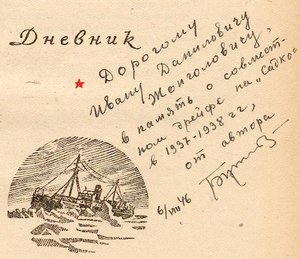 Дневник
Дорогому
Ивану Даниловичу
Жонголовичу,
в память о совмест-
ном дрейфе на "Садко"
в 1937-1938 гг,
от автора
6/VIII 46